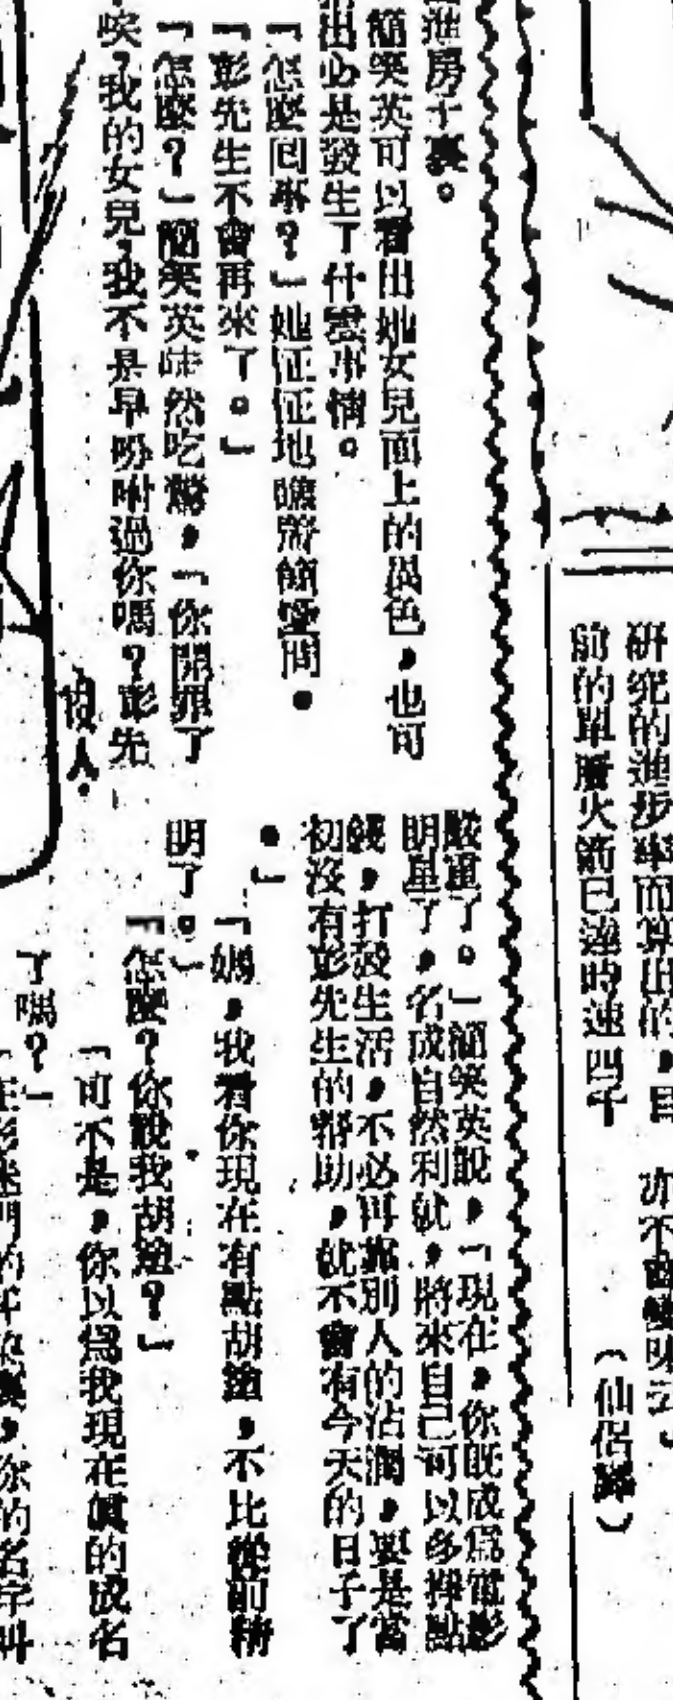 研究的進步率而算出的，目
前的單層火箭已達時速四千
亦不會變味云。
（仙侶譯）
進房子裏。
簡笑英可以看出她女兒面上的異色，也可
出必是發生了什麼事情。
「怎麼回事？」她怔怔地瞧着簡瑩問。
「彭先生不會再來了。」
「怎麼？」簡笑英陡然吃驚，「你開罪了
唉，我的女兒，我不是早吩咐過你嗎？彭先
嚴重了。」簡笑英說，「現在，你既成爲電影
明星了，名成自然利就，將來自己可以多掙點
錢，打發生活，不必再靠別人的沾潤，要是當
初沒有彭先生的幫助，就不會有今天的日子了
。」
「媽，我看你現在有點胡塗，不比從前精
明了。」
「怎麼？你說我胡塗？」
「可不是，你以爲我現在眞的成名
了嗎？」
你的名字叫